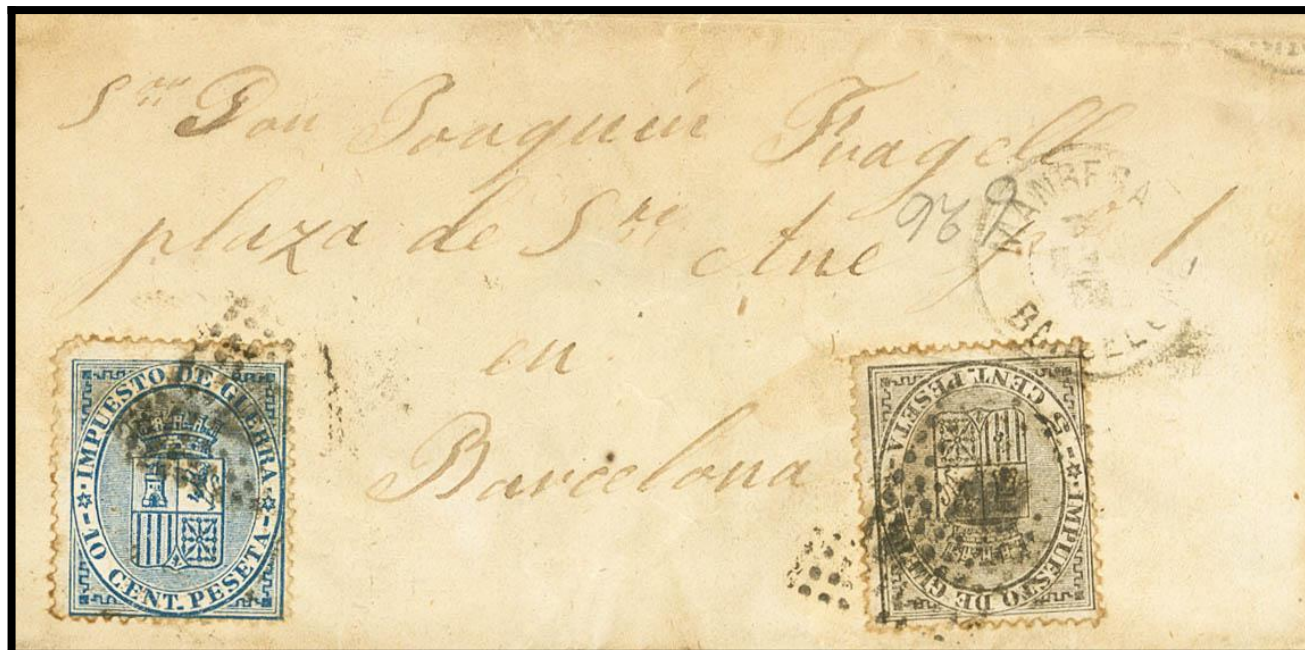 Sr Don Joaquin Fragell
plaza de Sta Ana nº 1,
en
Barcelona
MANRESA
BARCELO
IMPUESTO DE GUERRA
10 CENT. PESETA
IMPUESTO DE GUERRA
5 CENT. PESETA